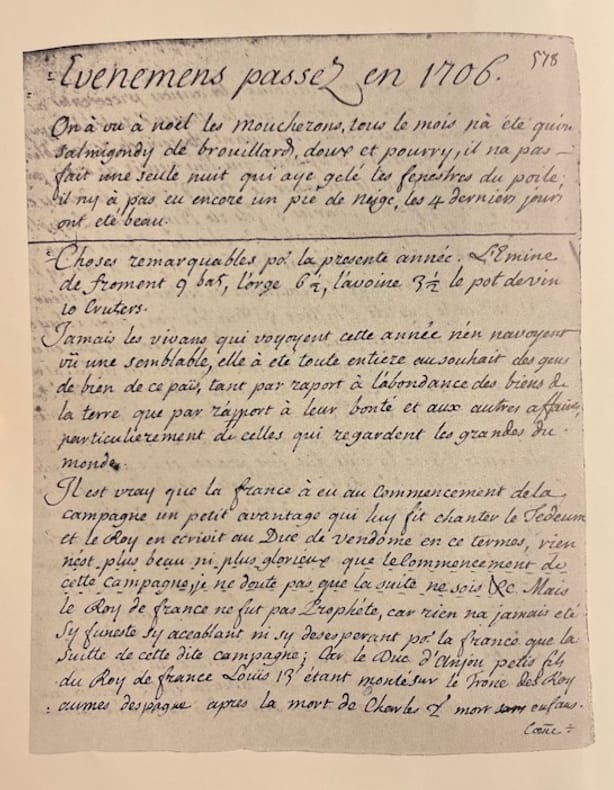 Evenemens passez en 1706. 578
On à vu à noel les moucherons, tous le mois nà eté quun
salmigondy de brouillard, doux et pourry, il na pas
fait une seule nuit qui aye gelé les fenestres du poile;
il ny à pas eu encore un pié de neige, les 4 derniers jours
ont eté beau.
Choses remarquables por. la presente année. L'Emine
de froment 9 bat, l'orge 6 1/2, l'avoine 3 1/2 le pot de vin
10 Cruters.
Jamais les vivans qui voyoyent cette année n'en navoyent
vû une semblable, elle à eté toute entiere au souhait des gens
de bien de ce païs, tant par raport à l'abondance des biens de
la terre que par râpport à leur bonté et aux autres affaires,
particulierement de celles qui regardent les grandes du
monde.
Il est vray que la france à eu au Commencement de la
campagne un petit avantage qui luy fit chanter le Tedeum
et le Roy en ecrivit au Duc de vendome en ce termes, rien
n'est plus beau ni plus glorieux que le Commencement de
cette campagne, je ne doute pas que la suite ne sois &c. Mais
le Roy de france ne fut pas Prophéte, car rien na jamais eté
sy funeste sy aceablant ni sy desesperant po. la france que la
suitte de cette dite campagne; Car le Duc d'Anjou petis fils
du Roy de france Louis 13e étant monté sur le Trone des Roy
aumes despagne apres la mort de Charles 2 mort sans enfans.